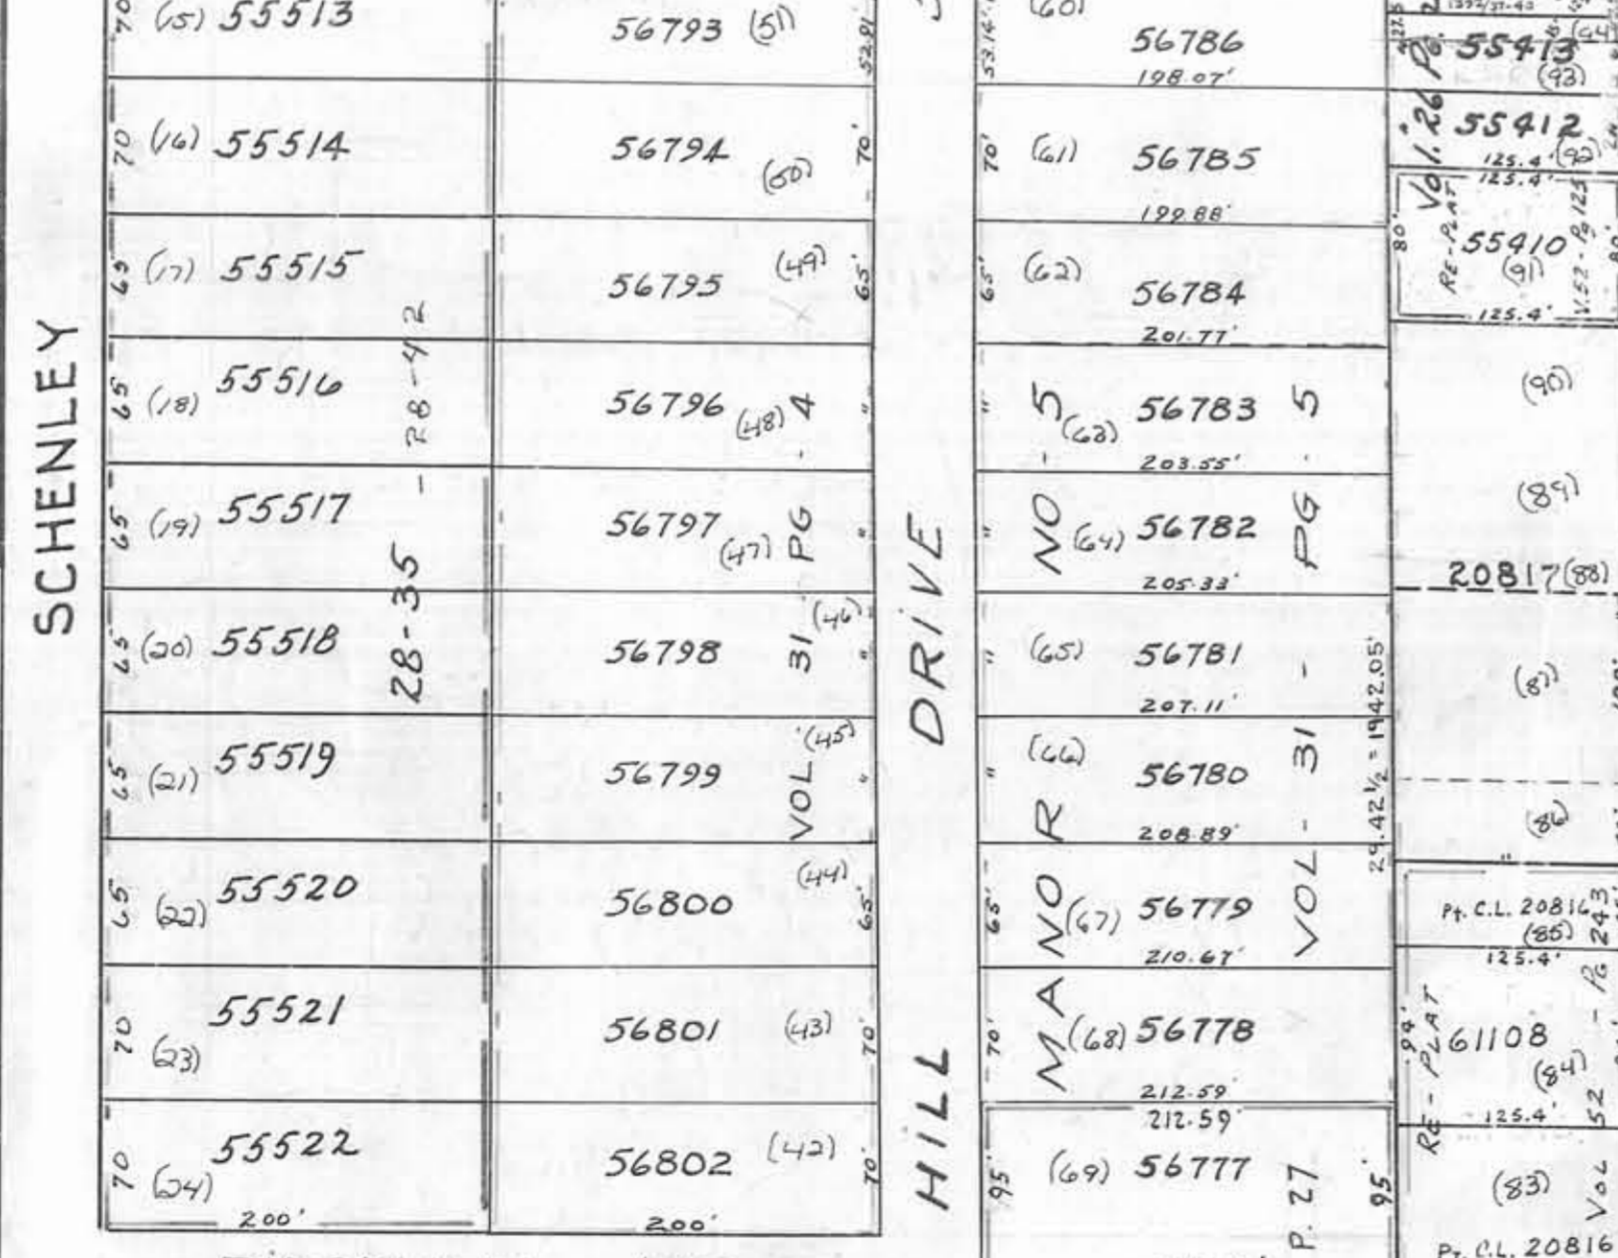 SCHENLEY
70
(15) 55513
70' (16) 55514
65 (17) 55515
65 (18) 55516
65 (19) 55517
65 (20) 55518
65 (21) 55519
65 (22) 55520
70 (23) 55521
70 (24) 55522
200'
28-35 - 28-42
56793 (51) 52.91'
56794 (50) 70'
56795 (49) 65'
56796 (48) "
56797 (47) "
56798 (46) "
56799 (45) "
56800 (44) 65'
56801 (43) 70'
56802 (42) 70'
200'
VOL. 31 PG. 4
HILL DRIVE
(60) 56786
53.14'
198.07'
70' (61) 56785
199.88'
65' (62) 56784
201.77'
" (63) 56783
203.55'
" (64) 56782
205.33'
" (65) 56781
207.11'
" (66) 56780
208.89'
65' (67) 56779
210.67'
70' (68) 56778
212.59'
212.59'
95' (69) 56777 95'
MANOR NO - 5
VOL - 31 - PG. 5
P. 27
29.42 1/2 = 1942.05'
Vol. 26 Pg.
55413
(93)
(94)
55412
(92)
125.4'
125.4'
80' 55410 80'
(91)
RE-PLAT
V.52-Pg 125
125.4'
(90)
(89)
20817 (88)
(87)
(86)
Pt. C.L. 20816
(85)
125.4'
94' 61108
(84)
125.4'
RE-PLAT
VOL 52 - PG 243
(83)
Pt. C.L. 20816